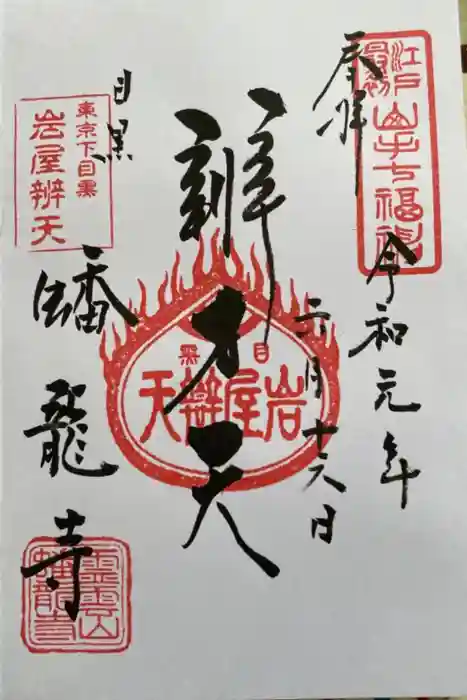 江戸
最初
山手七福神
奉拝
令和元年
六月十六日
辨才天
目黒
岩屋辨天
目黒
蟠龍寺
東京下目黒
岩屋辨天
靈雲山
蟠龍寺